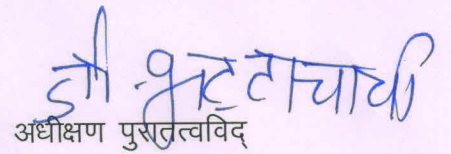 डॉ. भट्टाचार्य
अधीक्षण पुरातत्वविद्